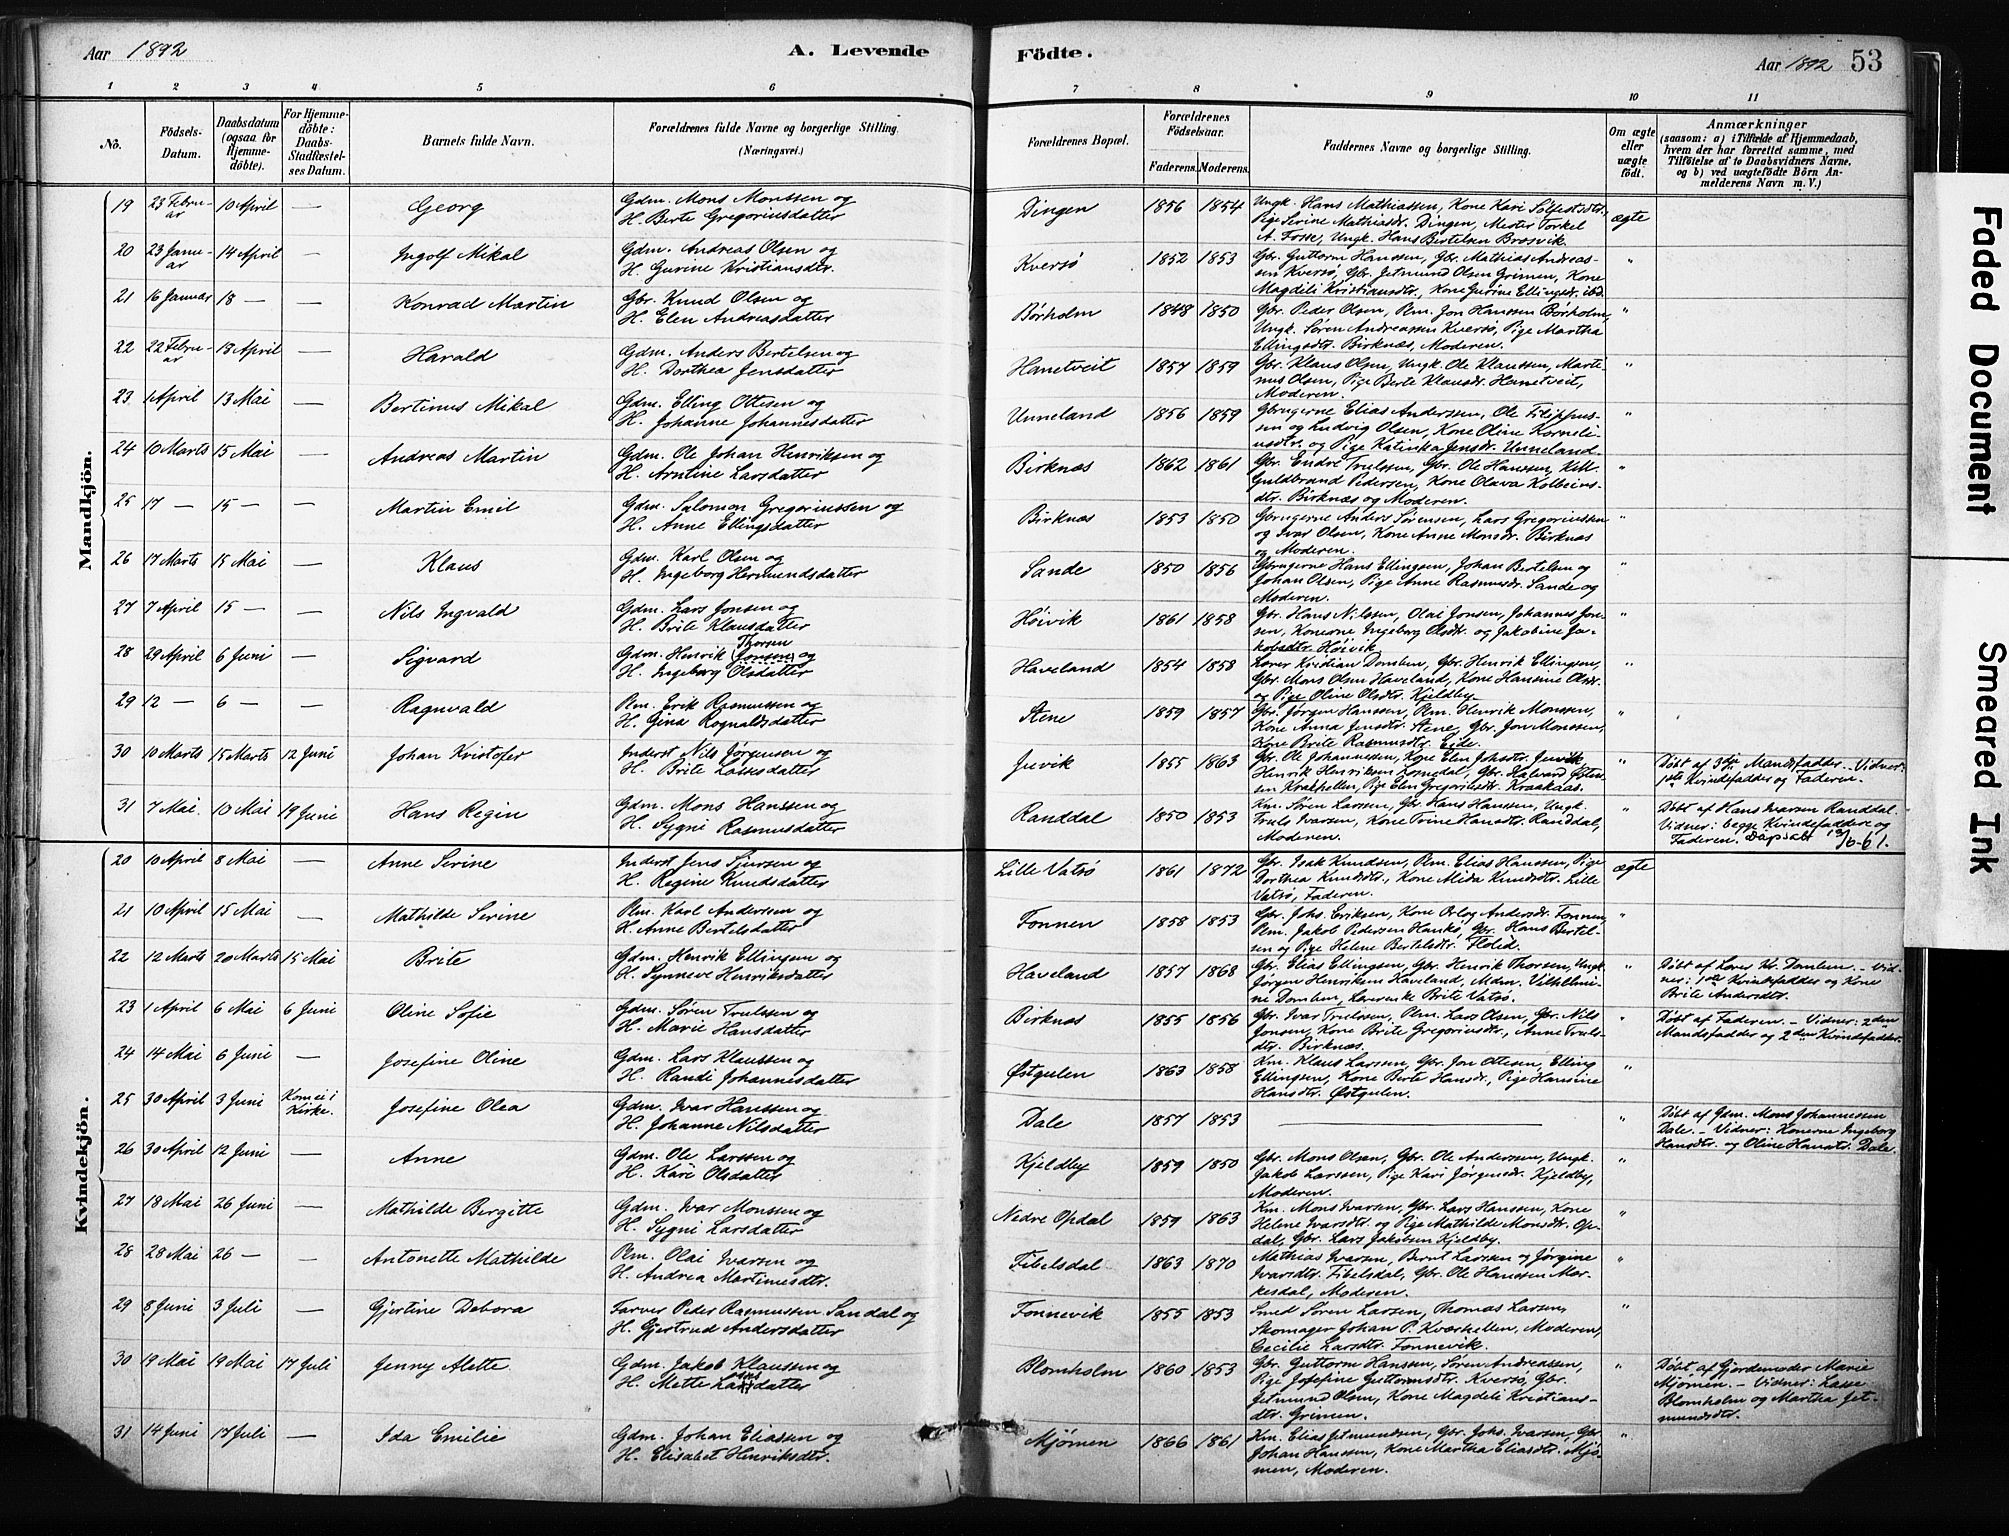 Aar 1892
A. Levende
Födte.
Aar 1892 53
1 2 3 4 5 6 7 8 9 10 11
No.
Födsels-
Datum.
Daabsdatum
(ogsaa for
Hjemme-
döbte).
For Hjemme-
döbte:
Daabs-
Stadfæstel-
ses Datum.
Barnets fulde Navn.
Forældrenes fulde Navne og borgerlige Stilling.
(Næringsvei.)
Forældrenes Bopæl.
Forældrenes
Födselsaar.
Faderens. Moderens.
Faddernes Navne og borgerlige Stilling.
Om ægte
eller
uægte
födt.
Anmærkninger
(saasom: a) i Tilfælde af Hjemmedaab,
hvem der har forrettet samme, med
Tilföielse af to Daabsvidners Navne,
og b) ved uægtefödte Börn An-
melderens Navn m. V.)
Mandkjön.
19 23 Febru-ar 10 April — Georg Gdm. Mons Monssen og
H. Berte Gregoriusdatter
Dingen 1856 1854 Ungk. Hans Mathiassen, Kone Kari Sølfestsdtr.,
Pige Serine Mathiasdtr. Dingen, Mester Torkel
A. Fosse, Ungk. Hans Bertelsen Brosvik.
ægte
20 23 Janu-ar 14 April — Ingolf Mikal Gdm. Andreas Olsen og
H. Gurine Kristiansdtr.
Kversø 1852 1853 Gbr. Guttorm Hanssen, Gbr. Mathias Andreas-
sen Kversø, Gbr. Jetmund Olsen Grimen, Kone
Magdeli Kristiansdtr., Kone Gurine Ellingsdtr. ibd.
"
21 16 Januar 18 — — Konrad Martin Gbr. Knud Olsen og
H. Elen Andreasdatter
Børholm 1848 1850 Gbr. Peder Olsen, Plm. Jon Hanssen Børholm,
Ungk. Søren Andreassen Kversø, Pige Martha
Ellingsdtr. Birknæs, Moderen.
"
22 22 Febru-ar 18 April — Harald Gdm. Anders Bertelsen og
H. Dorthea Jensdatter
Hanetveit 1857 1859 Gbr. Klaus Olsen, Ungk. Ole Klaussen, Marte-
nus Olsen, Pige Berte Klausdtr. Hanetveit,
Moderen.
"
23 1 April 13 Mai — Bertinus Mikal Gdm. Elling Ottesen og
H. Johanne Johannesdatter
Unneland 1856 1859 Gbrugerne Elias Anderssen, Ole Filippus-
sen og Ludvig Olsen, Kone Oline Korneli-
usdtr. og Pige Katinka Jensdr. Unneland.
"
24 10 Marts 15 Mai — Andreas Martin Gdm. Ole Johan Henriksen og
H. Arntine Larsdatter
Birknæs 1862 1861 Gbr. Endre Trulssen, Gbr. Ole Hanssen, Km.
Guldbrand Pedersen, Kone Olava Kolbeins-
dtr. Birknæs og Moderen.
"
25 17 — 15 — — Martin Emil Gdm. Salomon Gregoriussen og
H. Anne Ellingsdatter
Birknæs 1853 1850 Gbrugerne Anders Sørensen, Lars Gregoriussen
og Ivar Olsen, Kone Anne Monsdr. Birknæs
og Moderen.
"
26 17 Marts 15 Mai — Klaus Gdm. Karl Olsen og
H. Ingeborg Hermundsdatter
Sande 1850 1856 Gbrugerne Hans Ellingsen, Johan Bertelsen og
Johan Olsen, Pige Anne Rasmusdr. Sande og
Moderen.
"
27 7 April 15 — — Nils Ingvald Gdm. Lars Jonsen og
H. Brite Klausdatter
Høivik 1861 1858 Gbr. Hans Nilssen, Olai Jonsen, Johannes Jon-
sen, Konerne Ingeborg Olsdtr. og Jakobine Ja-
kobsdtr. Høivik
"
28 29 April 6 Juni — Sigvard Gdm. Henrik (Jonsen) Thorsen og
H. Ingeborg Olsdatter
Haveland 1854 1858 Lærer Kristian Domben, Gbr. Henrik Ellingsen,
Gbr. Mons Olsen Haveland, Kone Hansine Olsdr.
og Pige Oline Olsdtr. Kjeldby.
"
29 12 — 6 — — Ragnvald Plm. Erik Rasmussen og
H. Gina Rognaldsdatter
Stene 1859 1857 Gbr. Jørgen Hanssen, Plm. Henrik Monssen,
Kone Anna Jensdtr. Stene, Gbr. Jon Monssen,
Kone Brite Rasmusdtr. Eide.
"
30 10 Marts 15 Marts 12 Juni Johan Kristofer Inderst Nils Jørgensen og
H. Brite Lassesdatter
Juvik 1855 1863 Gbr. Ole Johannessen, Kone Elen Johsdtr. Juvik,
Henrik Henriksen, Gbr. Halvard Østen-
sen Krakhellen, Pige Elen Gregoriusdtr. Kraakaas.
" Døbt af 3die Mandsfadder. – Vidner:
1ste Kvindefadder og Faderen.
31 7 Mai. 10 Mai 19 Juni Hans Regin Gdm. Mons Hanssen og
H. Sygni Rasmusdatter
Randdal 1850 1853 Km. Søren Larssen, Gbr. Hans Hanssen, Ungk.
Truls Ivarsen, Kone Trine Hansdtr. Randdal,
Moderen.
" Døbt af Hans Ivarsen Randdal.
Vidner: begge Kvindefaddere og
Faderen. Dåpsatt 13/6-61.
Kvindekjön.
20 10 April 8 Mai — Anne Serine Inderst Jens Sjursen og
H. Regine Knudsdatter
Lille Vatsø 1861 1872 Gbr. Isak Knudsen, Plm. Elias Hanssen, Pige
Dorthea Knudsdtr., Kone Mida Knudsdtr. Lille
Vatsø, Faderen.
ægte
21 10 April 15 Mai — Mathilde Serine Plm. Karl Anderssen og
H. Anne Bertelsdatter
Fonnen 1858 1853 Gbr. Johs. Eriksen, Kone Orlog Andersdr. Fonnen,
Plm. Jakob Pedersen Hankø, Gbr. Hans Bertel-
sen og Pige Helene Bertelsdtr. Flolid.
"
22 12 Marts 20 Marts 15 Mai Brite Gdm. Henrik Ellingsen og
H. Synneve Henriksdatter
Haveland 1857 1868 Gbr. Elias Ellingsen, Gbr. Henrik Thorsen, Ungk.
Jørgen Henriksen Haveland, Mdm. Vilhelmi-
ne Domben, Lærerenke Brite Vatsø.
" Døbt af Lærer Kr. Domben. – Vid-
ner: 1ste Kvindefadder og Kone
Brite Andersdtr.
23 1 April 6 Mai 6 Juni Oline Sofie Gdm. Søren Trulssen og
H. Marie Hansdatter
Birknæs 1855 1856 Gbr. Ivar Trulssen, Plm. Lars Olsen, Gbr. Nils
Jonsen, Kone Brite Gregoriusdtr., Anne Truls-
dtr. Birknæs.
" Døbt af Faderen. – Vidner: 2den
Mandsfadder og 2den Kvindefadder.
24 14 Mai 6 Juni — Josefine Oline Gdm. Lars Klaussen og
H. Randi Johannesdatter
Østgulen 1863 1858 Km. Klaus Larsen, Gbr. Jon Ottesen, Elling
Ellingsen, Kone Berte Hansdr., Pige Hansine
Hansdtr. Østgulen.
"
25 30 April 3 Juni Kom ei i
Kirke. Josefine Olea Gdm. Ivar Hanssen og
H. Johanne Nilsdatter
Dale 1857 1853 —
" Døbt af Gdm. Mons Johannessen
Dale. – Vidner: Konerne Ingeborg
Hansdtr. og Oline Hansdtr. Dale.
26 30 April 12 Juni — Anne Gdm. Ole Larssen og
H. Kari Olsdatter
Kjeldby 1859 1850 Gbr. Mons Olsen, Gbr. Ole Anderssen, Ungk.
Jakob Larssen, Pige Kari Jørgensdr. Kjeldby,
Moderen.
"
27 18 Mai 26 Juni — Mathilde Bergitte Gdm. Ivar Monssen og
H. Sygni Larsdatter
Nedre Opdal 1859 1863 Km. Mons Ivarsen, Gbr. Lars Hanssen, Kone
Helene Ivarsdtr. og Pige Mathilde Monsdtr. Op-
dal, Gbr. Lars Jakobsen Kjeldby.
"
28 28 Mai 26 — — Antonette Mathilde Plm. Olai Ivarsen og
H. Andrea Martinesdtr.
Fibelsdal 1863 1870 Mathias Ivarsen, Bernt Larssen og Jørgine
Ivarsdtr. Fibelsdal, Gbr. Ole Hanssen Mar-
kesdal, Moderen.
"
29 8 Juni 3 Juli — Gjertine Debora Farver Peder Rasmussen Sandal og
H. Gjertrud Andersdatter
Fonnevik 1855 1853 Smed Søren Larsen, Thomas Larsen,
Skomager Johan P. Kværhellen, Moderen,
Cecilie Larsdtr. Fonnevik.
"
30 19 Mai 19 Mai 17 Juli Jenny Alette. Gdm. Jakob Klaussen og
H. Mette Larsdatter
Blomholm 1860 1853 Gbr. Guttorm Hanssen, Søren Andreassen,
Pige Josefine Guttormsdtr. Kversø, Gbr.
Jetmund Olsen, Kone Magdeli Kristians-
dtr. Grimen.
" Døbt af Gjordemoder Marie
Mjømen. – Vidner: Lasse
Blomholm og Martha Jet-
mundsdtr.
31 14 Juni 17 Juli — Ida Emilie Gdm. Johan Eliassen og
H. Elisabet Henriksdtr.
Mjømen 1866 1861 Km. Elias Jetmundsen, Gbr. Johs. Ivarsen, Gbr.
Johan Hanssen, Kone Martha Eliasdtr. Mjø-
men, Moderen.
"
Faded Document
Smeared Ink